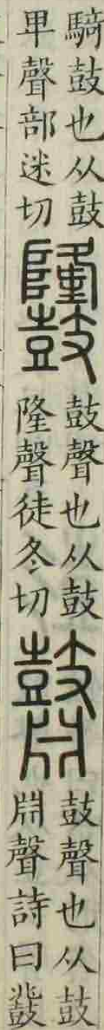 騎鼓也从鼓
卑聲部迷切
鼓聲也从鼓
隆聲徒冬切
鼘
鼓聲也从鼓
𣶒聲詩曰鼗